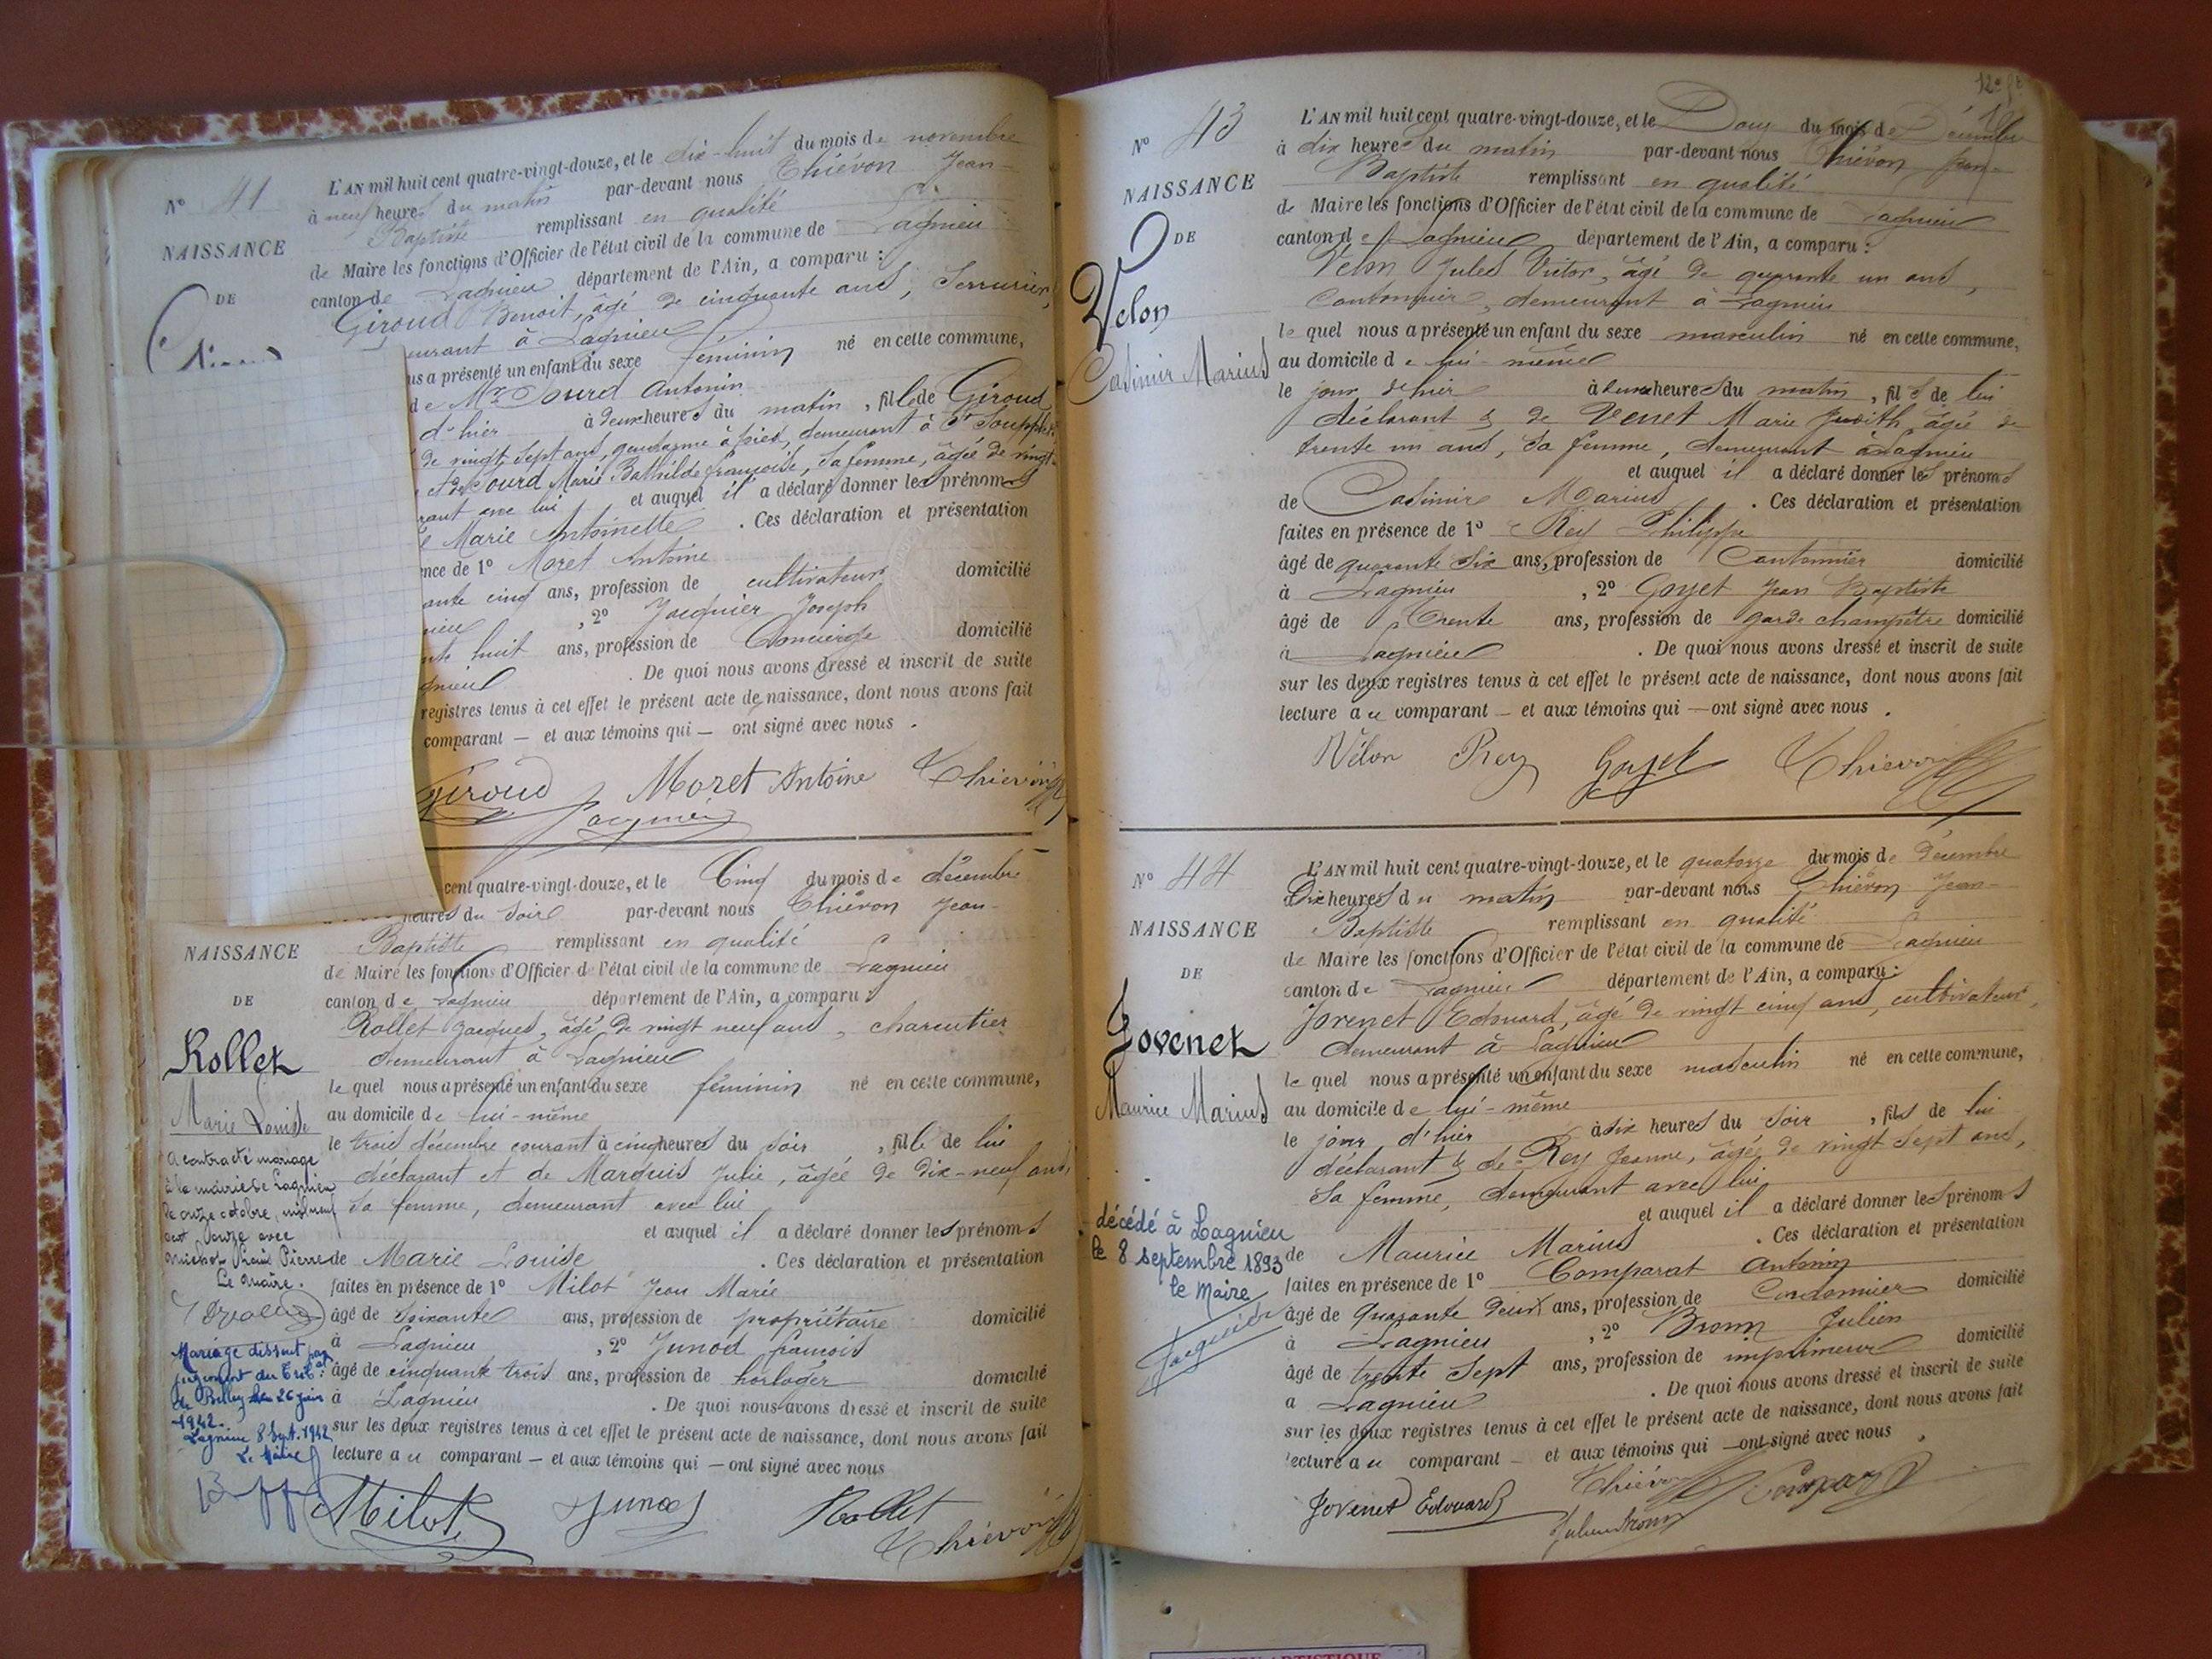 N° 41
NAISSANCE
DE
L'AN mil huit cent quatre-vingt-douze, et le dix-huit du mois de novembre
à neuf heures du matin par-devant nous Thiévon Jean-
Baptiste remplissant en qualité
de Maire les fonctions d'Officier de l'état civil de la commune de Lagnieu
canton de Lagnieu département de l'Ain, a comparu :
Giroud Benoit, âgé de cinquante ans, Serrurier,
eurant à Lagnieu
us a présenté un enfant du sexe féminin né en cette commune,
de Mr Sourd Antonin
d'hier à deux heures du matin, fille de Giroud
de vingt sept ans, gendarme à pied, demeurant à St
et de Sourd Marie Bathilde françoise, sa femme, âgée de vingt-
rant avec lui et auquel il a déclaré donner les prénoms
e Marie Antoinette . Ces déclaration et présentation
nce de 1° Moret Antoine
ante cinq ans, profession de cultivateur domicilié
nieu , 2° Jacquier Joseph
nte huit ans, profession de Concierge domicilié
gnieu . De quoi nous avons dressé et inscrit de suite
registres tenus à cet effet le présent acte de naissance, dont nous avons fait
comparant — et aux témoins qui — ont signé avec nous .
Giroud Moret Antoine Thiévon
Jacquier
cent quatre-vingt-douze, et le Cinq du mois de décembre
heures du soir par-devant nous Thiévon Jean-
Baptiste remplissant en qualité
de Maire les fonctions d'Officier de l'état civil de la commune de Lagnieu
canton de Lagnieu département de l'Ain, a comparu :
Rollet Jacques, âgé de vingt neuf ans, charcutier
demeurant à Lagnieu
le quel nous a présenté un enfant du sexe féminin né en cette commune,
au domicile de lui-même
le trois décembre courant à cinq heures du soir , fille de lui
déclarant et de Marquis Julie, âgée de dix-neuf ans,
sa femme, demeurant avec lui
et auquel il a déclaré donner les prénoms
de Marie Louise . Ces déclaration et présentation
faites en présence de 1° Milot Jean Marie
âgé de soixante ans, profession de propriétaire domicilié
à Lagnieu , 2° Junod françois
âgé de cinquante trois ans, profession de horloger domicilié
à Lagnieu . De quoi nous avons dressé et inscrit de suite
sur les deux registres tenus à cet effet le présent acte de naissance, dont nous avons fait
lecture au comparant — et aux témoins qui — ont signé avec nous
Milot Junod Rollet
Thiévon
NAISSANCE
DE
Rollet
Marie Louise
a contracté mariage
à la mairie de Lagnieu
le onze octobre mil neuf
cent onze avec
Michol Pierre
Le Maire.
Mariage dissout par
jugement du Trib.al
de Belley le 26 juin
1942.
Lagnieu 8 Sept. 1942
Le Maire
N° 43
NAISSANCE
DE
Velon
Casimir Marius
L'AN mil huit cent quatre-vingt-douze, et le Douze du mois de Décembre
à dix heures du matin par-devant nous Thiévon Jean-
Baptiste remplissant en qualité
de Maire les fonctions d'Officier de l'état civil de la commune de Lagnieu
canton de Lagnieu département de l'Ain, a comparu :
Velon Jules Victor, âgé de quarante un ans,
Cantonnier, demeurant à Lagnieu
le quel nous a présenté un enfant du sexe masculin né en cette commune,
au domicile de lui-même
le jour d'hier à deux heures du matin , fils de lui
déclarant & de Venet Marie Judith, âgée de
trente un ans, sa femme, demeurant à Lagnieu
et auquel il a déclaré donner les prénoms
de Casimir Marius . Ces déclaration et présentation
faites en présence de 1° Rey Philippe
âgé de quarante six ans, profession de Cantonnier domicilié
à Lagnieu , 2° Goyet Jean Baptiste
âgé de Trente ans, profession de garde champêtre domicilié
à Lagnieu . De quoi nous avons dressé et inscrit de suite
sur les deux registres tenus à cet effet le présent acte de naissance, dont nous avons fait
lecture au comparant — et aux témoins qui — ont signé avec nous .
Vélon Rey Goyet Thiévon
N° 44
NAISSANCE
DE
Jovenet
Maurice Marius
décédé à Lagnieu
le 8 septembre 1893
le Maire
Jacquier
L'AN mil huit cent quatre-vingt-douze, et le quatorze du mois de décembre
à Dix heures du matin par-devant nous Thiévon Jean-
Baptiste remplissant en qualité
de Maire les fonctions d'Officier de l'état civil de la commune de Lagnieu
canton de Lagnieu département de l'Ain, a comparu :
Jovenet Edouard, âgé de vingt cinq ans, cultivateur,
demeurant à Lagnieu
le quel nous a présenté un enfant du sexe masculin né en cette commune,
au domicile de lui-même
le jour d'hier à dix heures du soir , fils de lui
déclarant & de Rey Jeanne, âgée de vingt sept ans,
sa femme, demeurant avec lui
et auquel il a déclaré donner les prénoms
de Maurice Marius . Ces déclaration et présentation
faites en présence de 1° Comparat Antonin
âgé de quarante deux ans, profession de Cordonnier domicilié
à Lagnieu , 2° Bronn Julien
âgé de trente sept ans, profession de imprimeur domicilié
a Lagnieu . De quoi nous avons dressé et inscrit de suite
sur les deux registres tenus à cet effet le présent acte de naissance, dont nous avons fait
lecture au comparant — et aux témoins qui — ont signé avec nous .
Jovenet Edouard Thiévon Comparat
Julien Bronn